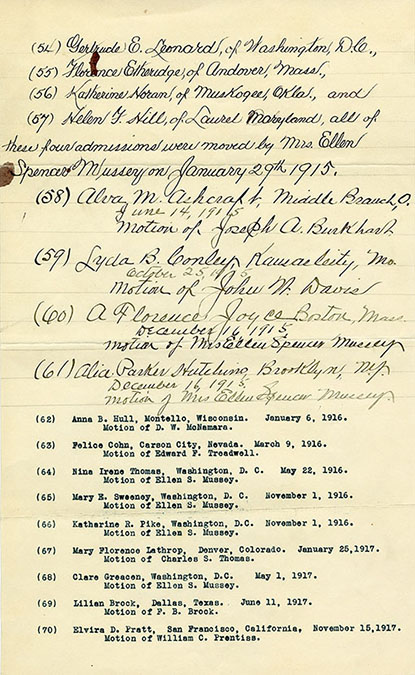 (54) Gertrude E. Leonard, of Washington, D.C.,
(55) Florence Etheridge, of Andover, Mass.,
(56) Katherine Horan, of Muskogee, Okla., and
(57) Helen F. Hill, of Laurel Maryland, all of
these four admissions were moved by Mrs. Ellen
Spencer Mussey on January 29th 1915.
(58) Alva M. Ashcraft, Middle Branch, O.
June 14, 1915
Motion of Joseph A. Burkhart
(59) Lyda B. Conley, Kansas City, Mo.
October 25, 1915
Motion of John W. Davis
(60) A Florence Joyce Boston, Mass.
December 16, 1915,
Motion of Mrs Ellen Spencer Mussey
(61) Parker Hutchins, Brooklyn, NY.
December 16 1915,
Motion of Mrs Ellen Spencer Mussey.
(62) Anna B. Hull, Montello, Wisconsin. January 6, 1916.
Motion of D. W. McNamara.
(63) Felice Cohn, Carson City, Nevada. March 9, 1916.
Motion of Edward F. Treadwell.
(64) Nina Irene Thomas, Washington, D. C. May 22, 1916.
Motion of Ellen S. Mussey.
(65) Mary E. Sweeny, Washington, D. C. November 1, 1916.
Motion of Ellen S. Mussey.
(66) Katharine R. Pike, Washington, D.C. November 1, 1916.
Motion of Ellen S. Mussey.
(67) Mary Florence Lathrop, Denver, Colorado. January 25,1917.
Motion of Charles S. Thomas.
(68) Clare Greacen, Washington, D.C. May 1, 1917.
Motion of Ellen S. Mussey.
(69) Lilian Brock, Dallas, Texas. June 11, 1917.
Motion of F. B. Brock.
(70) Elvira D. Pratt, San Francisco, California, November 15,1917.
Motion of William C. Prentiss.